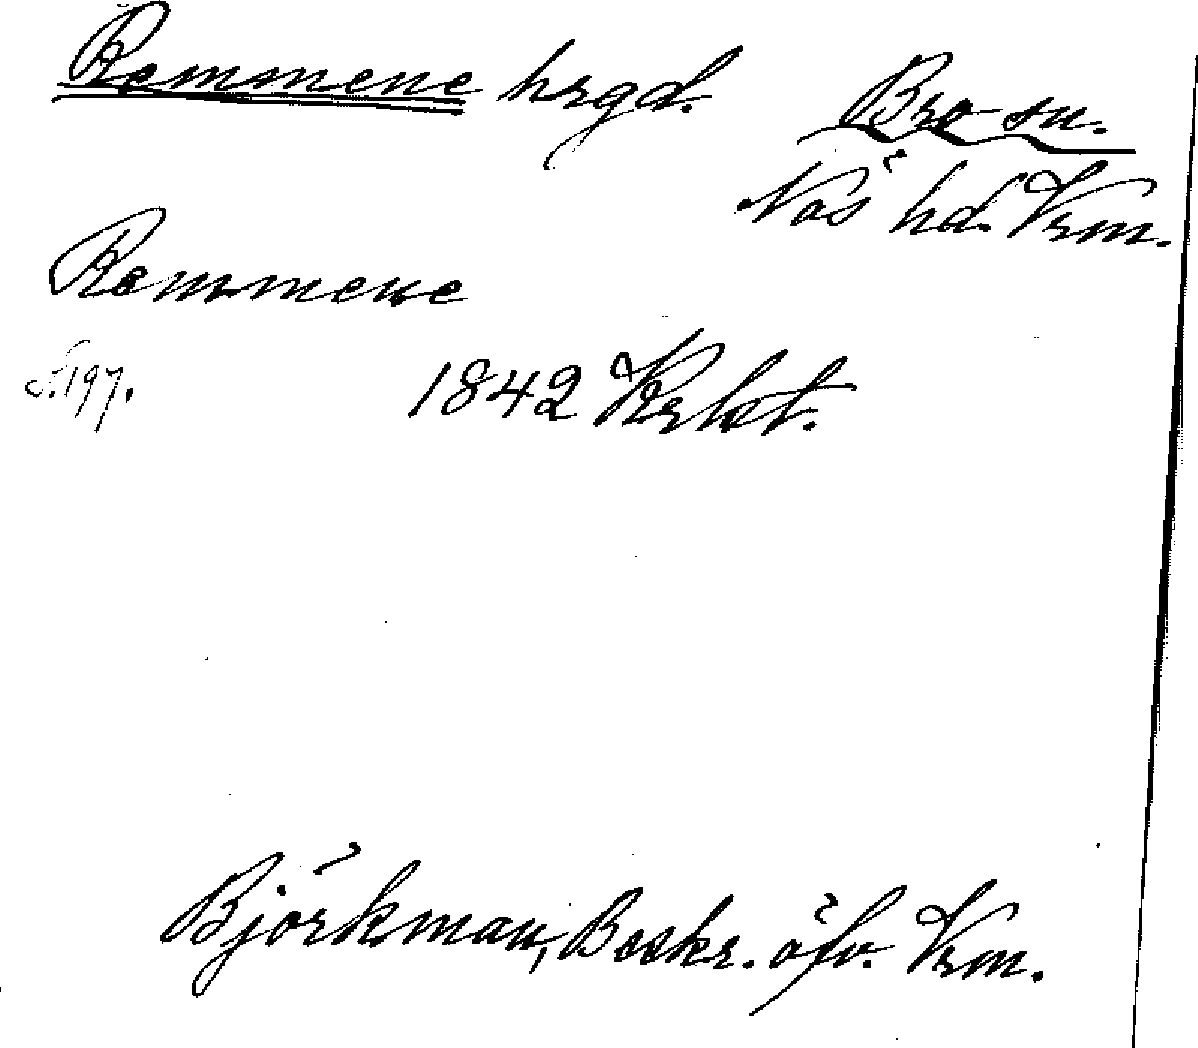 Remmene hrgd.
Bro sn.
Näs hd. Vrm.
Remmene
s. 197.
1842 Krlvt.
Björkman, Beskr. öfv. Vrm.